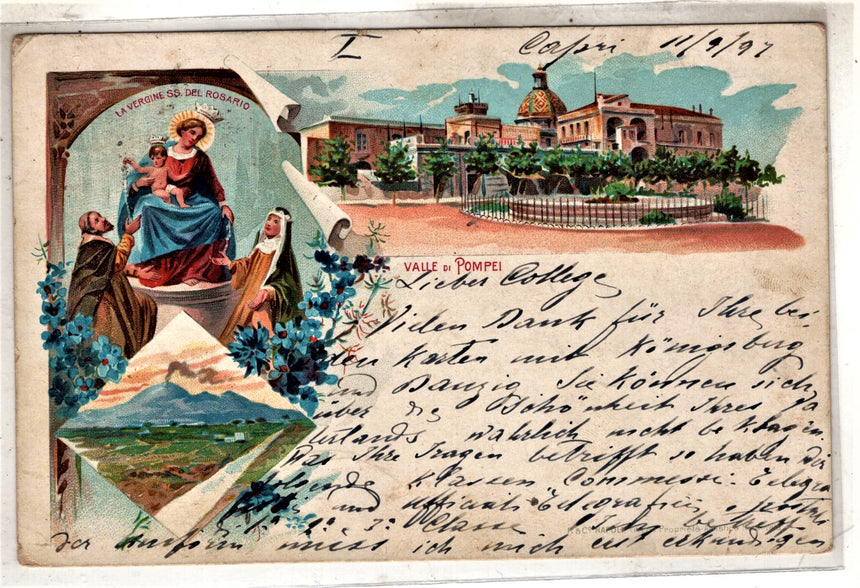 I Capri 11/9/97
LA VERGINE SS. DEL ROSARIO
VALLE DI POMPEI
Lieber College
Vielen Dank für Ihre bei-
den Karten mit Königsberg
und Danzig Sie können sich
über die Schönheit Ihres Va
terlands wahrlich nicht beklagen.
Was Ihre Fragen betrifft so haben wir
folgende Klassen Commessi-Telegra
fici und Ufficiali Telegrafici, postali
1ª 2ª 3ª Classe
Proprietà
der Uniform muss ich mich erst erkundigen